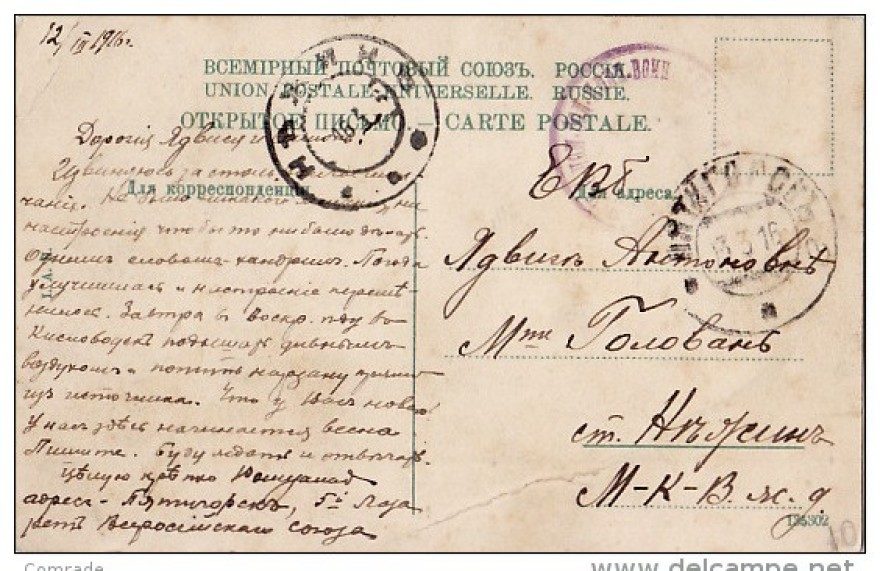 12/III 1916г.
ВСЕМІРНЫЙ ПОЧТОВЫЙ СОЮЗЪ. РОССІЯ.
UNION POSTALE UNIVERSELLE. RUSSIE.
ОТКРЫТОЕ ПИСЬМО. — CARTE POSTALE.
Для корреспонденціи
Для адреса
Дорогія Ядвига
Извиняюсь за столь
чаніе. Не было никакого
настроенія что бы то ни было
однимъ словомъ - хандрилъ. Погода
улучшилась и настроеніе перемѣ-
нилось. Завтра въ Воскр. ѣду въ
Кисловодскъ подышать дивнымъ
воздухомъ и попить нарзану
изъ источника. Что у Васъ новаго
У насъ здѣсь начинается весна
Пишите. Буду ждать и отвѣчать.
Цѣлую крѣпко
адресъ - Пятигорскъ, 5й Лаза
ретъ Всероссійскаго Союза
ЕВБ
Ядвигѣ Антоновнѣ
Голованъ
ст. Нѣжинъ
М-К-В. ж. д.
ПЯТИГОРСКЪ
3 16
НѢЖИНЪ
16
135302
10
Comrade
www.delcampe.net